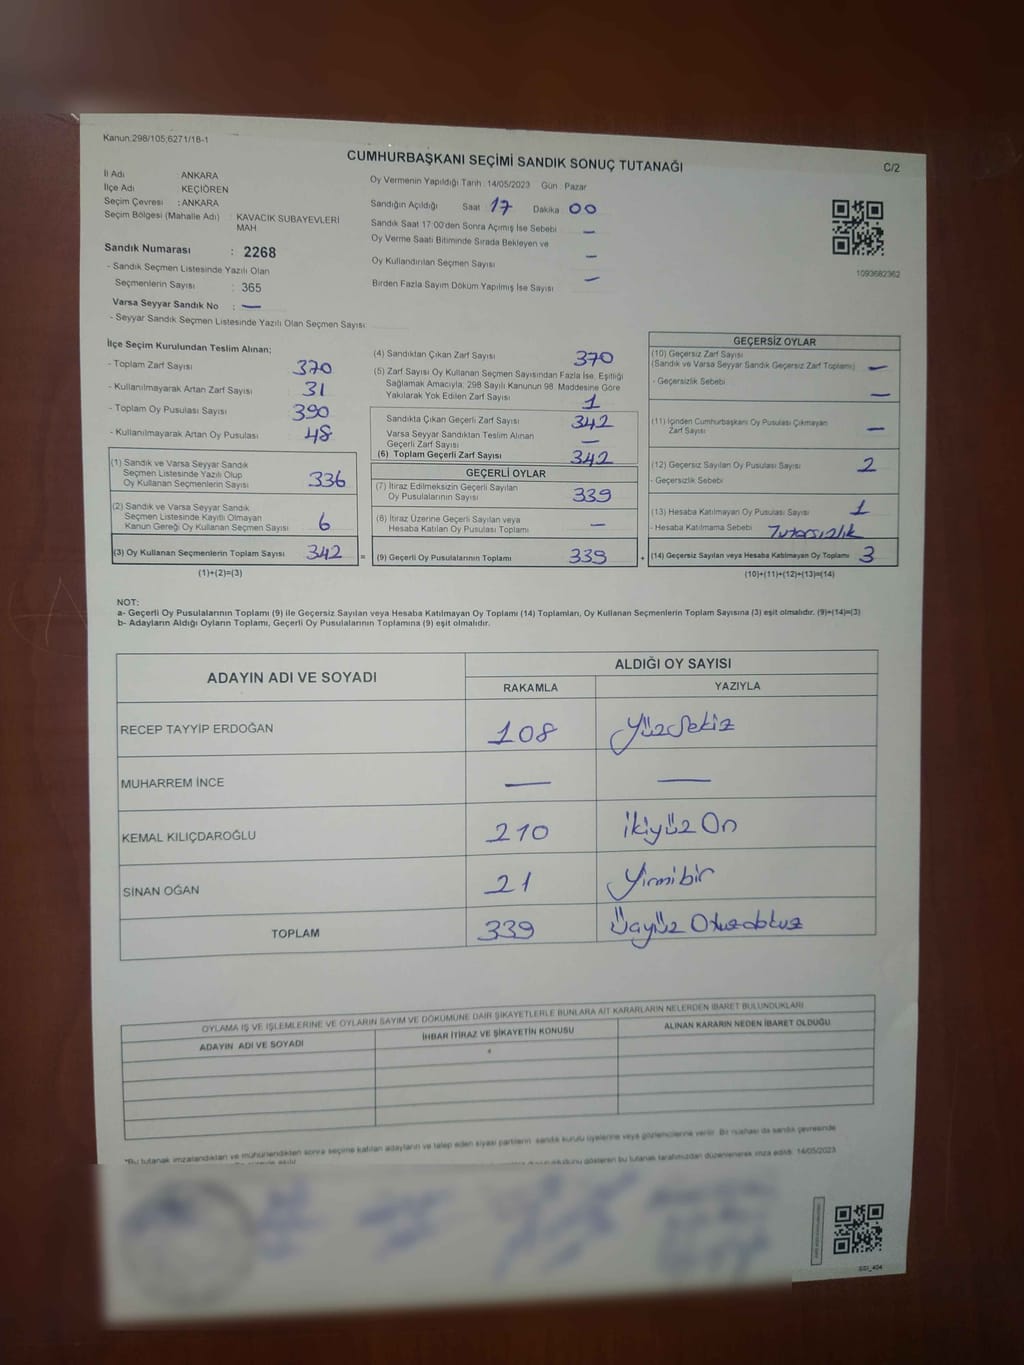 Kanun:298/105;6271/18-1
CUMHURBAŞKANI SEÇİMİ SANDIK SONUÇ TUTANAĞI
C/2
İl Adı ANKARA
İlçe Adı KEÇİÖREN
Seçim Çevresi : ANKARA
Seçim Bölgesi (Mahalle Adı) : KAVACIK SUBAYEVLERİ
MAH
Sandık Numarası : 2268
- Sandık Seçmen Listesinde Yazılı Olan
Seçmenlerin Sayısı : 365
Varsa Seyyar Sandık No : —
- Seyyar Sandık Seçmen Listesinde Yazılı Olan Seçmen Sayısı
Oy Vermenin Yapıldığı Tarih : 14/05/2023 Gün : Pazar
Sandığın Açıldığı Saat 17 Dakika 00
Sandık Saat 17:00'den Sonra Açımış İse Sebebi —
Oy Verme Saati Bitiminde Sırada Bekleyen ve
Oy Kullandırılan Seçmen Sayısı —
Birden Fazla Sayım Döküm Yapılmış İse Sayısı —
1093682362
İlçe Seçim Kurulundan Teslim Alınan;
- Toplam Zarf Sayısı 370
- Kullanılmayarak Artan Zarf Sayısı 31
- Toplam Oy Pusulası Sayısı 390
- Kullanılmayarak Artan Oy Pusulası 48
(1) Sandık ve Varsa Seyyar Sandık
Seçmen Listesinde Yazılı Olup
Oy Kullanan Seçmenlerin Sayısı 336
(2) Sandık ve Varsa Seyyar Sandık
Seçmen Listesinde Kayıtlı Olmayan
Kanun Gereği Oy Kullanan Seçmen Sayısı 6
(3) Oy Kullanan Seçmenlerin Toplam Sayısı 342 =
(1)+(2)=(3)
(4) Sandıktan Çıkan Zarf Sayısı 370
(5) Zarf Sayısı Oy Kullanan Seçmen Sayısından Fazla İse, Eşitliği
Sağlamak Amacıyla, 298 Sayılı Kanunun 98. Maddesine Göre
Yakılarak Yok Edilen Zarf Sayısı 1
Sandıkta Çıkan Geçerli Zarf Sayısı 342
Varsa Seyyar Sandıktan Teslim Alınan
Geçerli Zarf Sayısı —
(6) Toplam Geçerli Zarf Sayısı 342
GEÇERLİ OYLAR
(7) İtiraz Edilmeksizin Geçerli Sayılan
Oy Pusulalarının Sayısı 339
(8) İtiraz Üzerine Geçerli Sayılan veya
Hesaba Katılan Oy Pusulası Toplamı —
(9) Geçerli Oy Pusulalarının Toplamı 339 +
GEÇERSİZ OYLAR
(10) Geçersiz Zarf Sayısı
(Sandık ve Varsa Seyyar Sandık Geçersiz Zarf Toplamı) —
- Geçersizlik Sebebi —
(11) İçinden Cumhurbaşkanı Oy Pusulası Çıkmayan
Zarf Sayısı —
(12) Geçersiz Sayılan Oy Pusulası Sayısı 2
- Geçersizlik Sebebi
(13) Hesaba Katılmayan Oy Pusulası Sayısı 1
- Hesaba Katılmama Sebebi Tutarsızlık
(14) Geçersiz Sayılan veya Hesaba Katılmayan Oy Toplamı 3
(10)+(11)+(12)+(13)=(14)
NOT:
a- Geçerli Oy Pusulalarının Toplamı (9) ile Geçersiz Sayılan veya Hesaba Katılmayan Oy Toplamı (14) Toplamları, Oy Kullanan Seçmenlerin Toplam Sayısına (3) eşit olmalıdır. (9)+(14)=(3)
b- Adayların Aldığı Oyların Toplamı, Geçerli Oy Pusulalarının Toplamına (9) eşit olmalıdır.
ADAYIN ADI VE SOYADI ALDIĞI OY SAYISI
RAKAMLA YAZIYLA
RECEP TAYYİP ERDOĞAN 108 Yüzsekiz
MUHARREM İNCE — —
KEMAL KILIÇDAROĞLU 210 ikiyüz On
SİNAN OĞAN 21 Yirmibir
TOPLAM 339 Üçyüz Otuzdokuz
OYLAMA İŞ VE İŞLEMLERİNE VE OYLARIN SAYIM VE DÖKÜMÜNE DAİR ŞİKAYETLERLE BUNLARA AİT KARARLARIN NELERDEN İBARET BULUNDUKLARI
ADAYIN ADI VE SOYADI İHBAR İTİRAZ VE ŞİKAYETİN KONUSU ALINAN KARARIN NEDEN İBARET OLDUĞU
*Bu tutanak imzalandıktan ve mühürlendikten sonra seçime katılan adayların ve talep eden siyasi partilerin sandık kurulu üyelerine veya gözlemcilerine verilir. Bir nüshası da sandık çevresinde
gösteren bu tutanak tarafımızdan düzenlenerek imza edildi. 14/05/2023
SSI_404